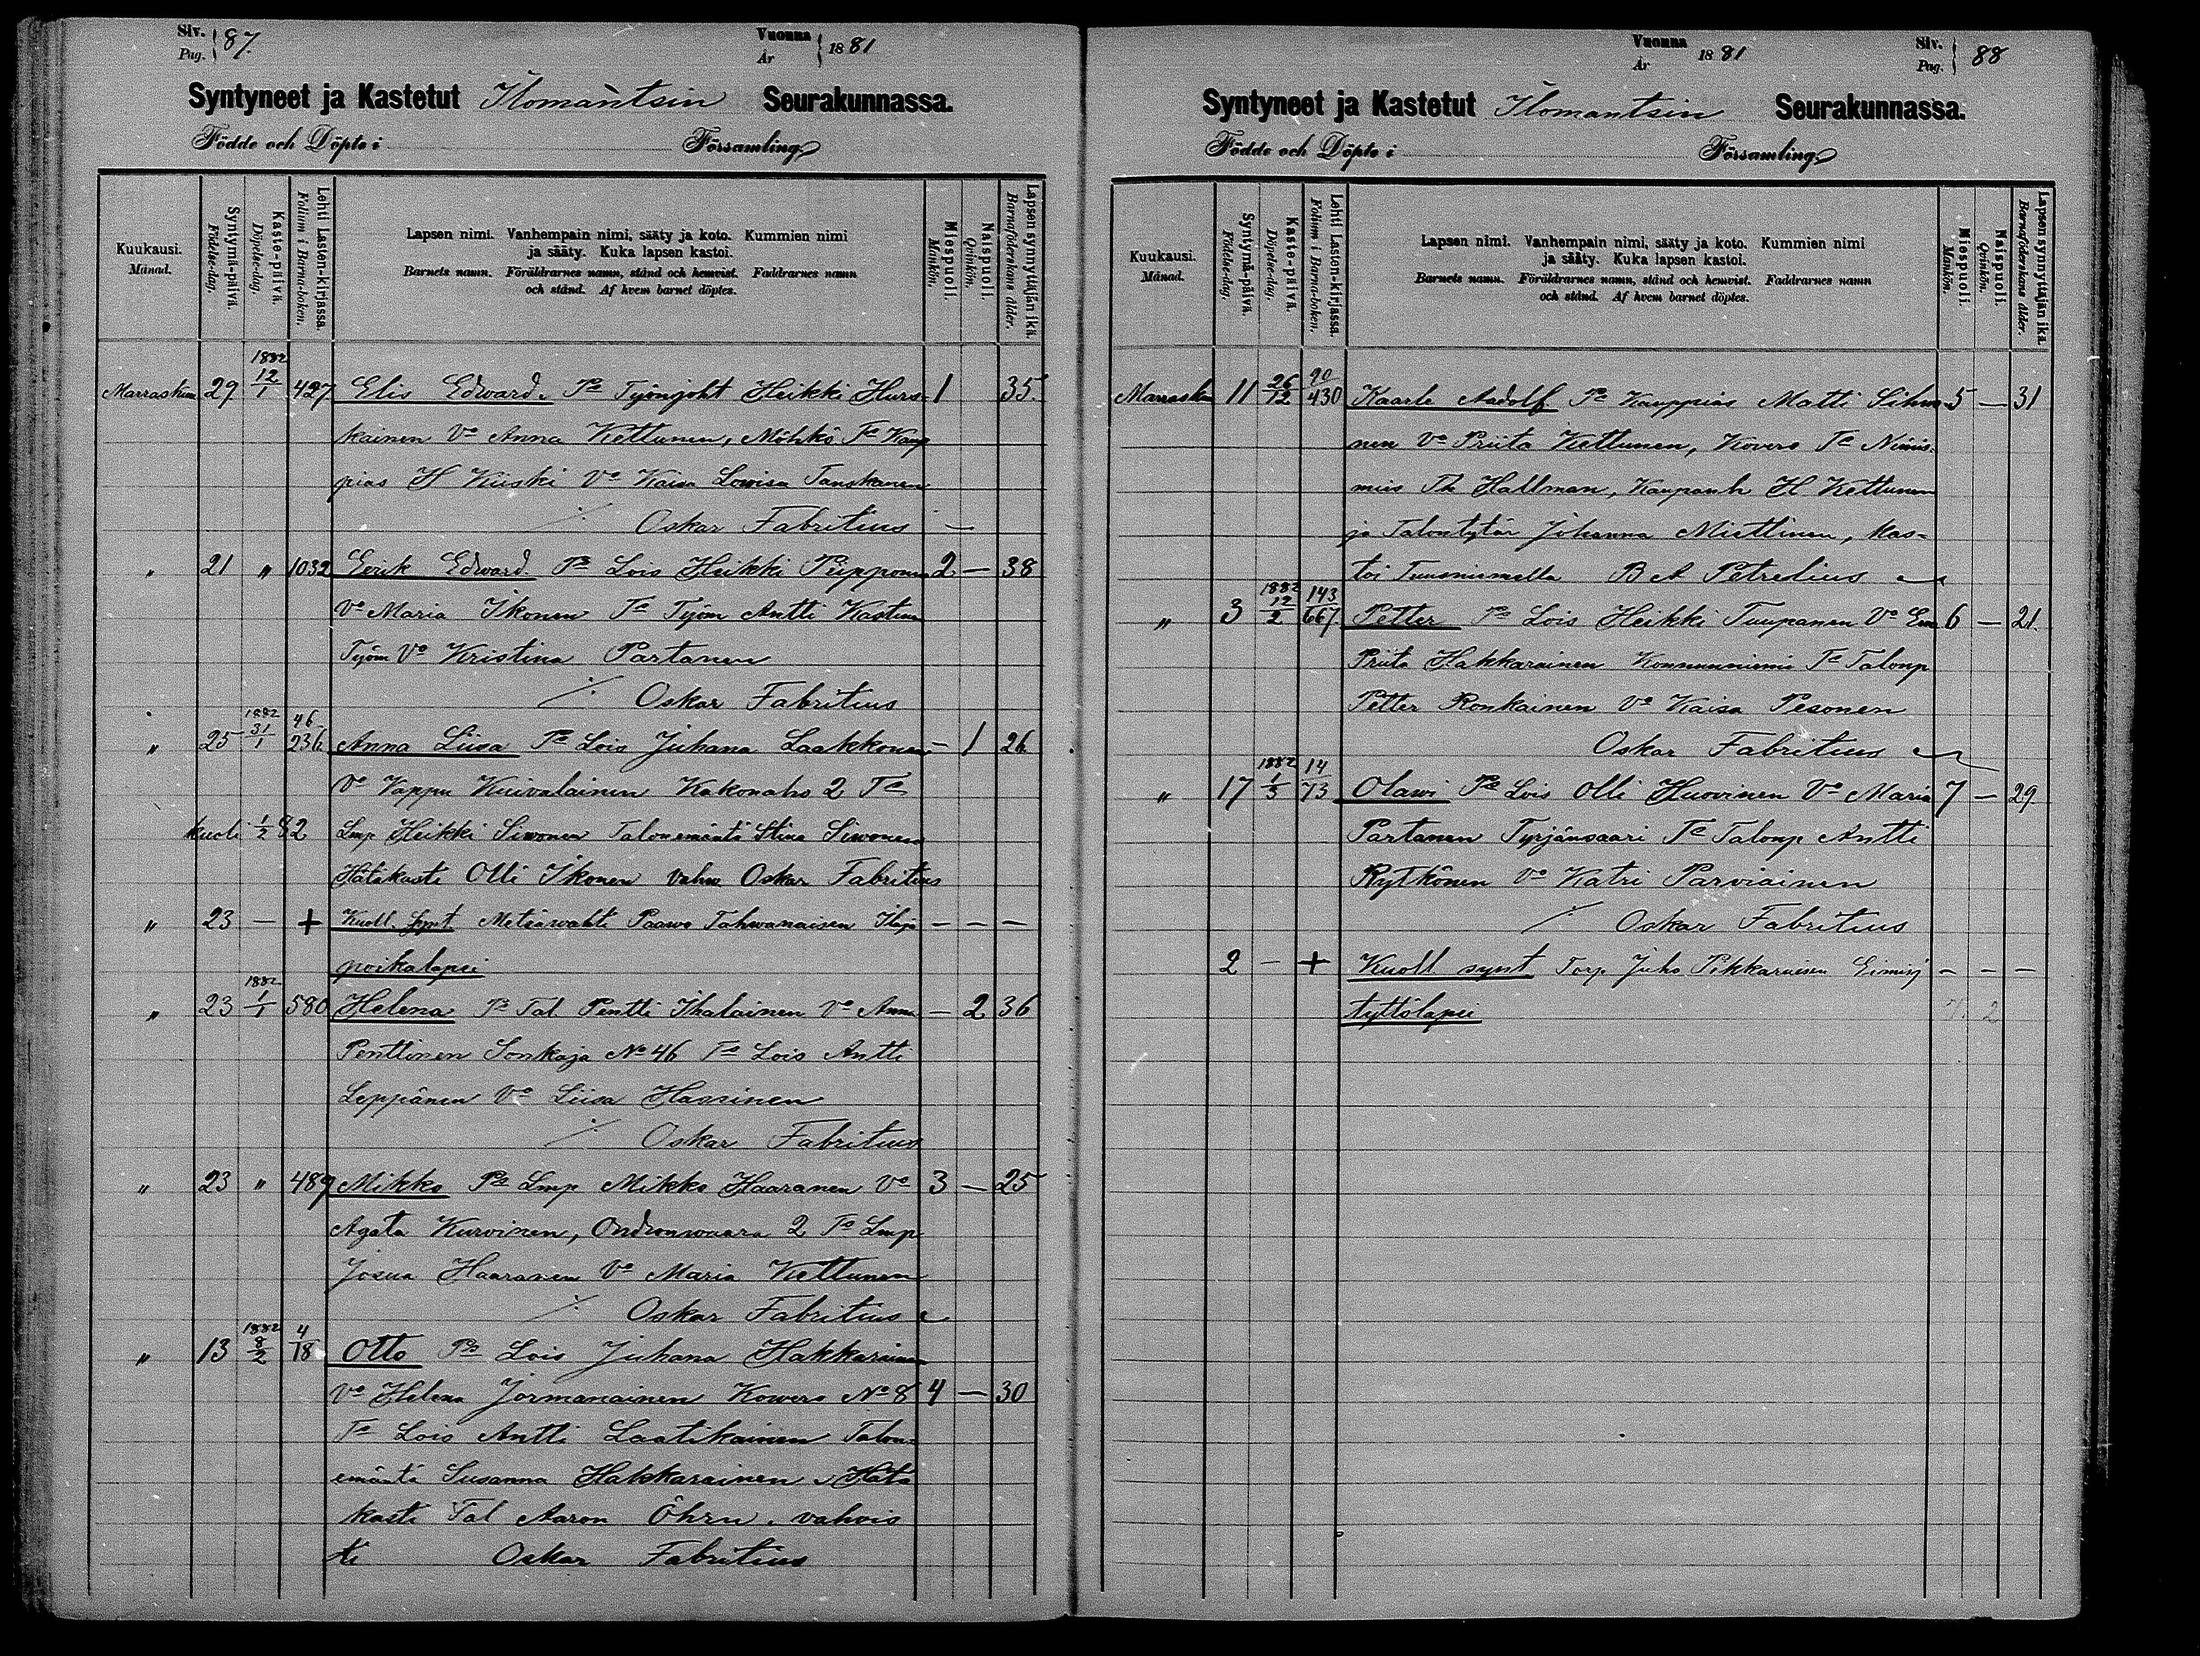 Siv. Pag. 87. Vuonna År 1881
Syntyneet ja Kastetut Ilomantsin Seurakunnassa.
Födde och Döpte i Församling
Kuukausi. Månad.
Syntymä-päivä. Födelse-dag.
Kaste-päivä. Döpelse-dag.
Lehti Lasten-kirjassa. Folium i Barna-boken.
Lapsen nimi. Vanhempain nimi, sääty ja koto. Kummien nimi
ja sääty. Kuka lapsen kastoi.
Barnets namn. Föräldrarnes namn, stånd och hemvist. Faddrarnes namn
och stånd. Af hvem barnet döptes.
Miespuoli. Mankön.
Naispuoli. Qvinkön.
Lapsen synnyttäjän ikä. Barnaföderskans ålder.
Marraskuu 29 1882 12/1 427 Elis Edward. Ta Työnjoht Heikki Hurs- 1 35.
kainen Vo Anna Kettunen, Möhkö Ta Kaup
pias H Kiiski Vo Kaisa Lowisa Tanskanen
Oskar Fabritius —
" 21 " 1032 Eerik Edward. Ta Lois Heikki Piipponen 2 — 38
Vo Maria Ikonen Ta Työm Antti
Työm Vo Kristina Partanen
Oskar Fabritius
" 25 1882 31/1 46/236 Anna Liisa Ta Lois Juhana Laakkonen — 1 26
Vo Vappu Kuivalainen Kakonaho 2 Ta
kuoli 1/2 82 Lmp Heikki Siwonen Talonemäntä Stina Siwonen
Hätäkasti Olli Ikonen vahw Oskar Fabritius
" 23 — + Kuoll. synt. Metsäwahti Paawo Tahwanaisen Ilaja — — —
poikalapsi
" 23 1882 1/1 580 Helena Ta Tal Pentti Ikalainen Vo Anna — 2 36
Penttinen Sonkaja No 46 Ta Lois Antti
Leppänen Vo Liisa Hassinen
Oskar Fabritius
" 23 " 489 Mikko Ta Lmp Mikko Haaranen Vo 3 — 25
Agata Kurvinen, Ondronwaara 2 Ta Lmp
Josua Haaranen Vo Maria Kettunen
Oskar Fabritius
" 13 1882 8/2 4/18 Otto Ta Lois Juhana Hakkarainen
Vo Helena Jormanainen Kowero No 8 4 — 30
Ta Lois Antti Laatikainen Talon-
emäntä Susanna Hakkarainen. Hätä
kasti Tal Aaron Öhrn. vahvis
ti Oskar Fabritius
Vuonna År 1881 Siv. Pag. 88
Syntyneet ja Kastetut Ilomantsin Seurakunnassa.
Födde och Döpte i Församling
Kuukausi. Månad.
Syntymä-päivä. Födelse-dag.
Kaste-päivä. Döpelse-dag.
Lehti Lasten-kirjassa. Folium i Barna-boken.
Lapsen nimi. Vanhempain nimi, sääty ja koto. Kummien nimi
ja sääty. Kuka lapsen kastoi.
Barnets namn. Föräldrarnes namn, stånd och hemvist. Faddrarnes namn
och stånd. Af hvem barnet döptes.
Miespuoli. Mankön.
Naispuoli. Qvinkön.
Lapsen synnyttäjän ikä. Barnaföderskans ålder.
Marrask 11 26/12 90/430 Kaarle Aadolf Ta Kauppias Matti Sihvo- 5 — 31
nen Vo Priita Kettunen, Kövero Ta Nimis-
mies Th Hallman, Kaupanh H Kettunen
ja Talontytär Johanna Miettinen, kas-
toi Tuusniemella B A Petrelius
" 3 1882 12/2 143/667 Petter Ta Lois Heikki Tuupanen Vo Eva 6 — 21.
Priita Hakkarainen Konnunniemi Ta Talonp
Petter Ronkainen Vo Kaisa Pesonen
Oskar Fabritius
" 17 1882 1/3 14/73 Olawi Ta Lois Olli Huovinen Vo Maria 7 — 29
Partanen Tyrjänsaari Ta Talonp Antti
Rytkönen Vo Katri Parviainen
Oskar Fabritius
2 — + Kuoll synt Torp Juho Pikkaraisen — — —
tyttölapsi 7. 2